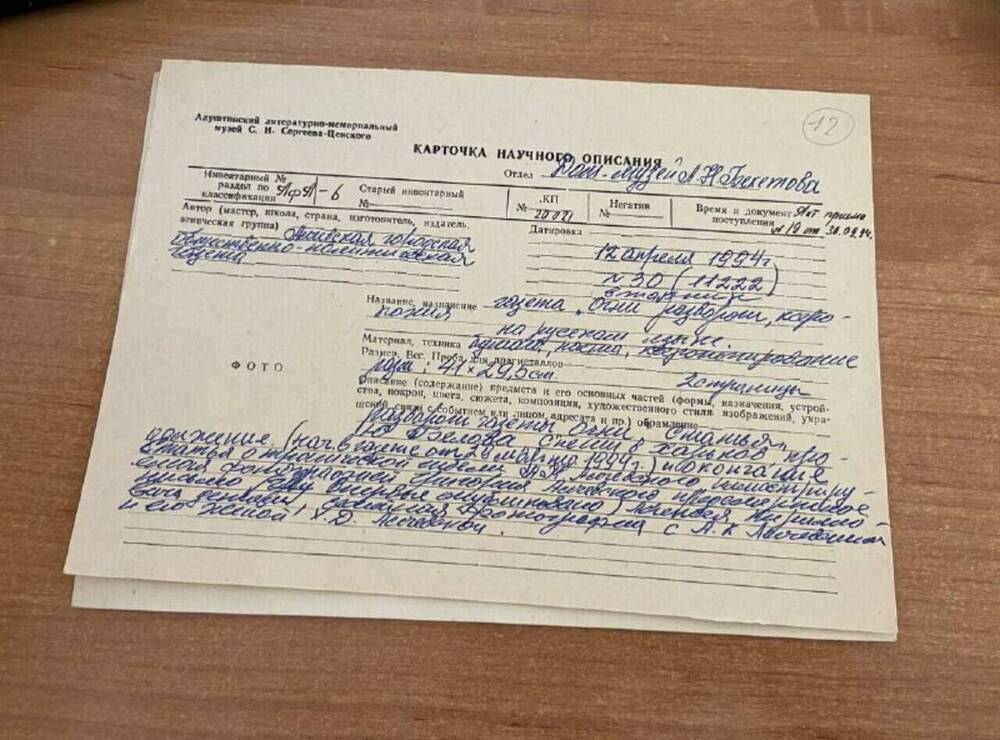 12
Алуштинский литературно-мемориальный
музей С. Н. Сергеева-Ценского
КАРТОЧКА НАУЧНОГО ОПИСАНИЯ
Отдел Дом-музей А.Н. Бекетова
Инвентарный №
раздел по
классификации АфА-6
Старый инвентарный
№
КП
№ 20021
Негатив
№
Время и документ Акт приема
поступления №19 от 30.09.94.
Автор (мастер, школа, страна, изготовитель, издатель,
этническая группа) городская
общественно-политическая
газета
Датировка
12 апреля 1994г
№ 30 (11222)
вторник
Название, назначение газета "Огни разворот, карто-
на русском языке.
Материал, техника бумага, картонирование
Размер. Вес. Проба для драгметаллов
разм: 41×29,5см. 2 страницы
ФОТО
Описание (содержание) предмета и его основных частей (формы, назначения, устрой-
ства, покрон, цвета, сюжета, композиции, художественного стиля изображений, укра-
шений, связи с событием или лицом, адресата и пр.) обрамление
Разворот газеты Огни. Статья
Ю. Спешу в Харьков про-
должение (нач в газете от 29 марта 1994г.) и окончание
Статья о трагической гибели А.К.
фотографией Григория
письмо впервые опубликовано)
фотография с А.К.
и его женой Х.Д.